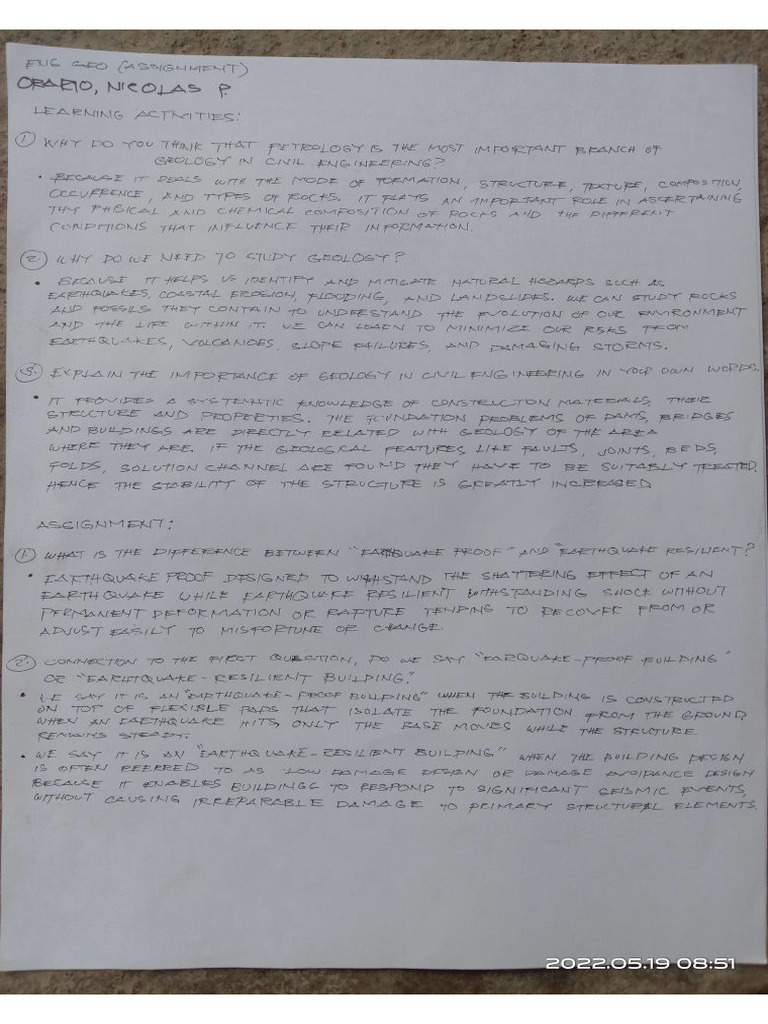 ENG GEO (ASSIGNMENT)
ORARIO, NICOLAS P.
LEARNING ACTIVITIES:
① WHY DO YOU THINK THAT PETROLOGY IS THE MOST IMPORTANT BRANCH OF
GEOLOGY IN CIVIL ENGINEERING?
• BECAUSE IT DEALS WITH THE MODE OF FORMATION, STRUCTURE, TEXTURE, COMPOSITION,
OCCURRENCE, AND TYPES OF ROCKS. IT PLAYS AN IMPORTANT ROLE IN ASCERTAINING
THY PHISICAL AND CHEMICAL COMPOSITION OF ROCKS AND THE DIFFERENT
CONDITIONS THAT INFLUENCE THEIR INFORMATION.
② WHY DO WE NEED TO STUDY GEOLOGY?
• BECAUSE IT HELPS US IDENTIFY AND MITIGATE NATURAL HAZARDS SUCH AS
EARTHQUAKES, COASTAL EROSION, FLOODING, AND LANDSLIDES. WE CAN STUDY ROCKS
AND FOSSILS THEY CONTAIN TO UNDERSTAND THE EVOLUTION OF OUR ENVIRONMENT
AND THE LIFE WITHIN IT. WE CAN LEARN TO MINIMIZE OUR RISKS FROM
EARTHQUAKES, VOLCANOES, SLOPE FAILURES, AND DAMAGING STORMS.
③ EXPLAIN THE IMPORTANCE OF GEOLOGY IN CIVIL ENGINEERING IN YOUR OWN WORDS.
• IT PROVIDES A SYSTEMATIC KNOWLEDGE OF CONSTRUCTON MATERIALS, THEIR
STRUCTURE AND PROPERTIES. THE FOUNDATION PROBLEMS OF DAMS, BRIDGES
AND BUILDINGS ARE DIRECTLY RELATED WITH GEOLOGY OF THE AREA
WHERE THEY ARE. IF THE GEOLOGICAL FEATURES LIKE FAULTS, JOINTS, BEDS,
FOLDS, SOLUTION CHANNEL ARE FOUND THEY HAVE TO BE SUITABLY TREATED.
HENCE THE STABILITY OF THE STRUCTURE IS GREATLY INCREASED
ASSIGNMENT:
① WHAT IS THE DIFFERENCE BETWEEN "EARTHQUAKE PROOF" AND "EARTHQUAKE RESILIENT?
• EARTHQUAKE PROOF DESIGNED TO WITHSTAND THE SHATTERING EFFECT OF AN
EARTHQUAKE WHILE EARTHQUAKE RESILIENT WITHSTANDING SHOCK WITHOUT
PERMANENT DEFORMATION OR RAPTURE TENDING TO RECOVER FROM OR
ADJUST EASILY TO MISFORTUNE OR CHANGE.
② CONNECTION TO THE FIRST QUESTION, DO WE SAY "EARQUAKE-PROOF BUILDING"
OR "EARTHQUAKE-RESILIENT BUILDING?
• WE SAY IT IS AN "EARTHQUAKE-PROOF BUILDING" WHEN THE BUILDING IS CONSTRUCTED
ON TOP OF FLEXIBLE PADS THAT ISOLATE THE FOUNDATION FROM THE GROUND,
WHEN AN EARTHQUAKE HITS, ONLY THE BASE MOVES WHILE THE STRUCTURE
REMAINS STEADY.
• WE SAY IT IS AN "EARTHQUAKE-RESILIENT BUILDING" WHEN THE BUILDING DESIGN
IS OFTEN REFERRED TO AS LOW DAMAGE DESIGN OR DAMAGE AVOIDANCE DESIGN
BECAUSE IT ENABLES BUILDINGS TO RESPOND TO SIGNIFICANT SEISMIC EVENTS,
WITHOUT CAUSING IRREPARABLE DAMAGE TO PRIMARY STRUCTURAL ELEMENTS.
2022.05.19 08:51